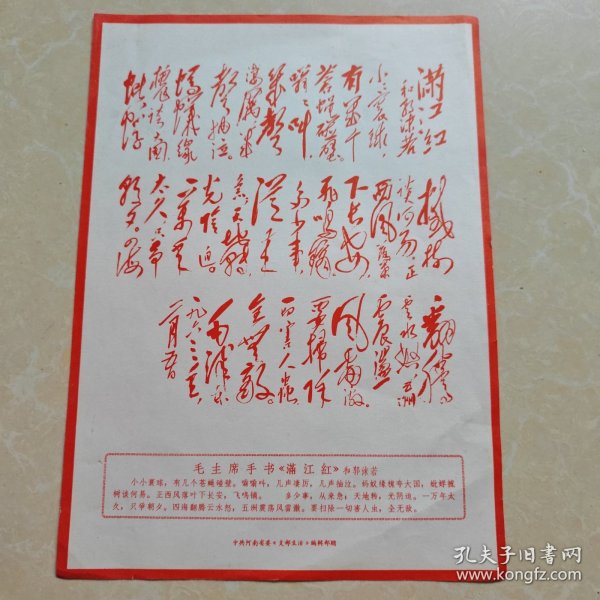 满江红
和郭沫若
小小寰球，
有几个
苍蝇碰壁。
嗡嗡叫，
几声
凄厉，几
声抽泣。
蚂蚁缘
槐夸大国，
蚍蜉
撼树
谈何易。正
西风落叶
下长安，
飞鸣镝。
多少事，
从来
急；天地转，
光阴迫。
一万年
太久，只争
朝夕。四海
翻腾
云水怒，五洲
震荡
风雷激。
要扫除
一切害人虫，
全无敌。
毛泽东
一九六三年
一月五日
毛主席手书《满江红》和郭沫若
小小寰球，有几个苍蝇碰壁。嗡嗡叫，几声凄厉，几声抽泣。蚂蚁缘槐夸大国，蚍蜉撼
树谈何易。正西风落叶下长安，飞鸣镝。　多少事，从来急；天地转，光阴迫。一万年太
久，只争朝夕。四海翻腾云水怒，五洲震荡风雷激。要扫除一切害人虫，全无敌。
中共河南省委《支部生活》编辑部赠
孔夫子旧书网
www.kongfz.com